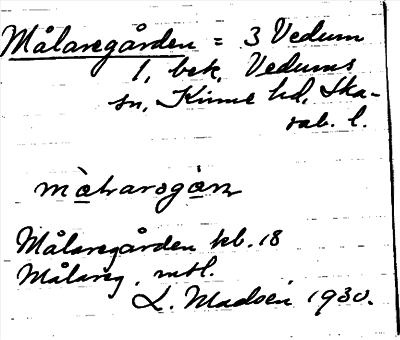 Målaregården = 3 Vedum
1, bek, Vedums
sn, Kinne hd, Ska-
rab. l.
målvarsgårn
Målaregården kb. 18
Målareg. mtl.
L. Madsén 1930.